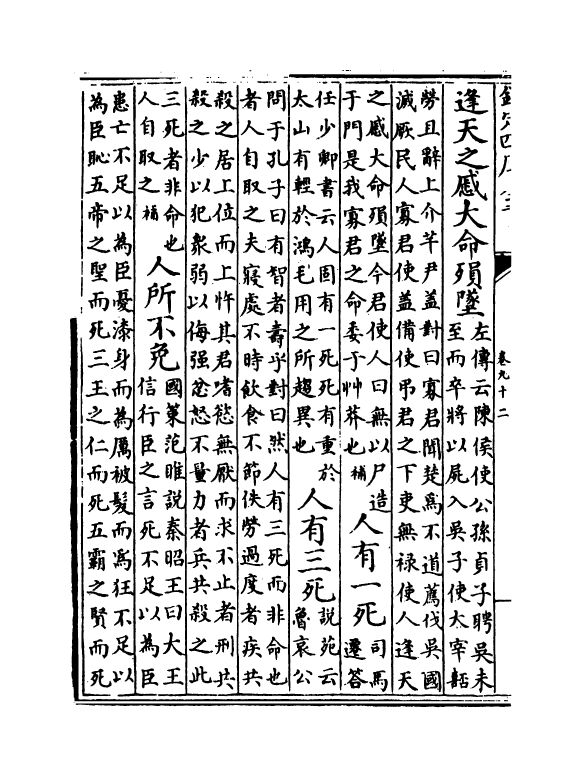 卷九十二
逢天之慼大命殞墜
左傳云陳侯使公孫貞子聘吳未
至而卒將以屍入吳子使太宰嚭
勞且辭上介芊尹蓋對曰寡君聞楚為不道薦伐吳國
滅厥民人寡君使蓋備使弔君之下吏無禄使人逢天
之慼大命殞墜今君使人曰無以尸造
于門是我寡君之命委于艸莽也補
人有一死
司馬
遷答
任少卿書云人固有一死死有重於
太山有輕於鴻毛用之所趨異也
人有三死
説苑云
魯哀公
問于孔子曰有智者壽乎對曰然人有三死而非命也
者人自取之夫寢處不時飲食不節佚勞過度者疾共
殺之居上位而上忤其君嗜慾無厭而求不止者刑共
殺之少以犯衆弱以侮强忿怒不量力者兵共殺之此
三死者非命也
人自取之補
人所不免
國策范睢説秦昭王曰大王
信行臣之言死不足以為臣
患亡不足以為臣憂漆身而為厲被髮而為狂不足以
為臣恥五帝之聖而死三王之仁而死五霸之賢而死